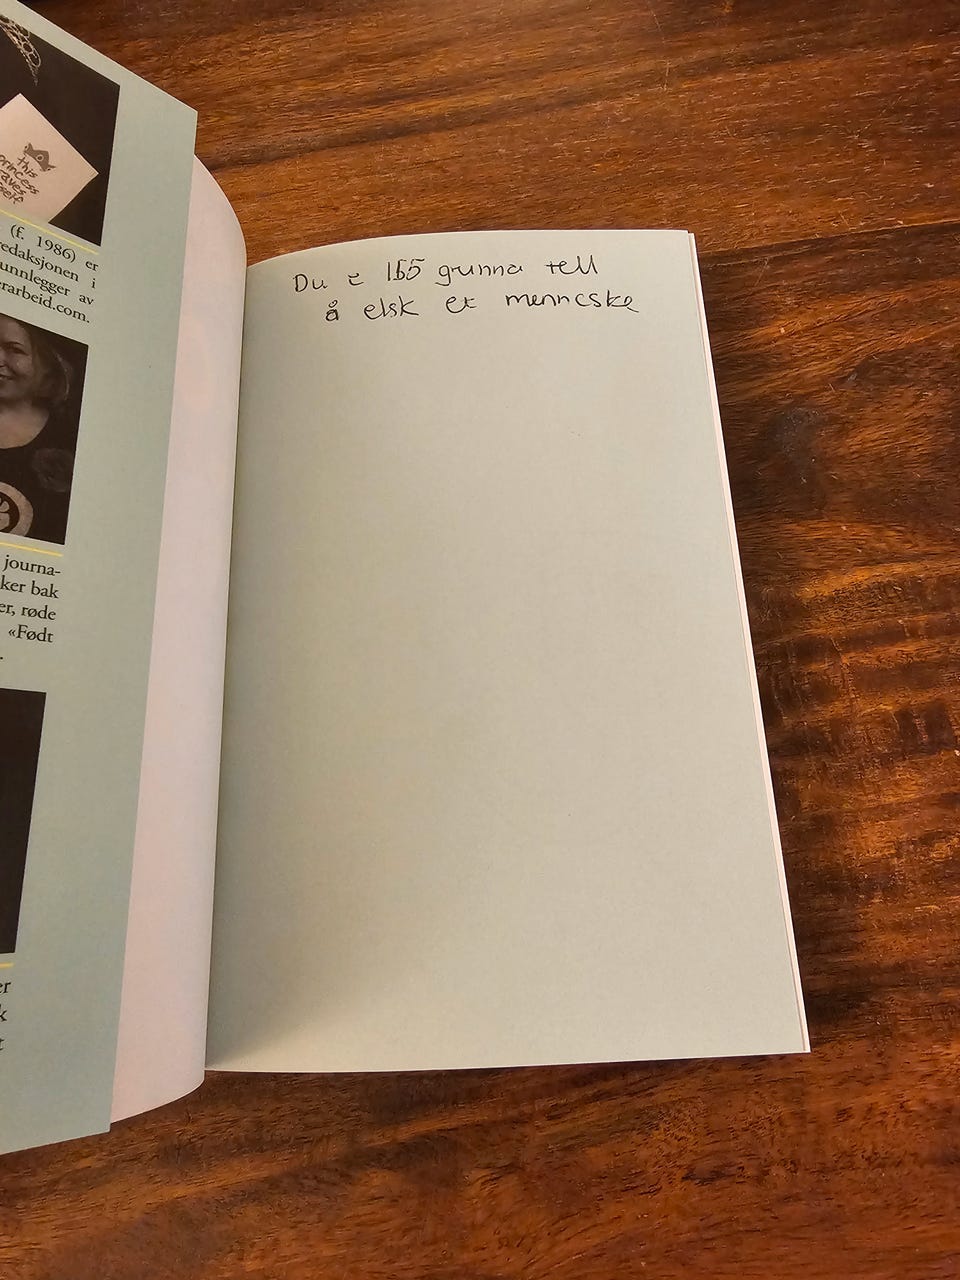 this
princess
saves
self
(f. 1986) er
redaksjonen i
unnlegger av
erarbeid.com.
journa-
ker bak
er, røde
«Født
er
k
t
Du e 165 grunna tell
å elsk et menneske